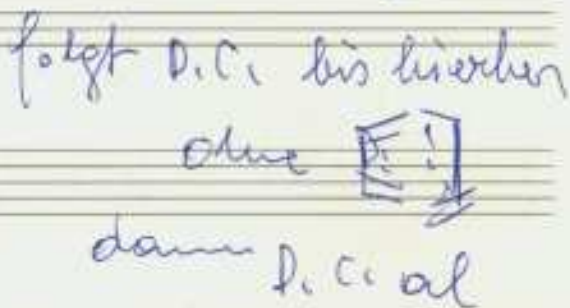 folgt D.C. bis hierher
ohne
dann D.C. al